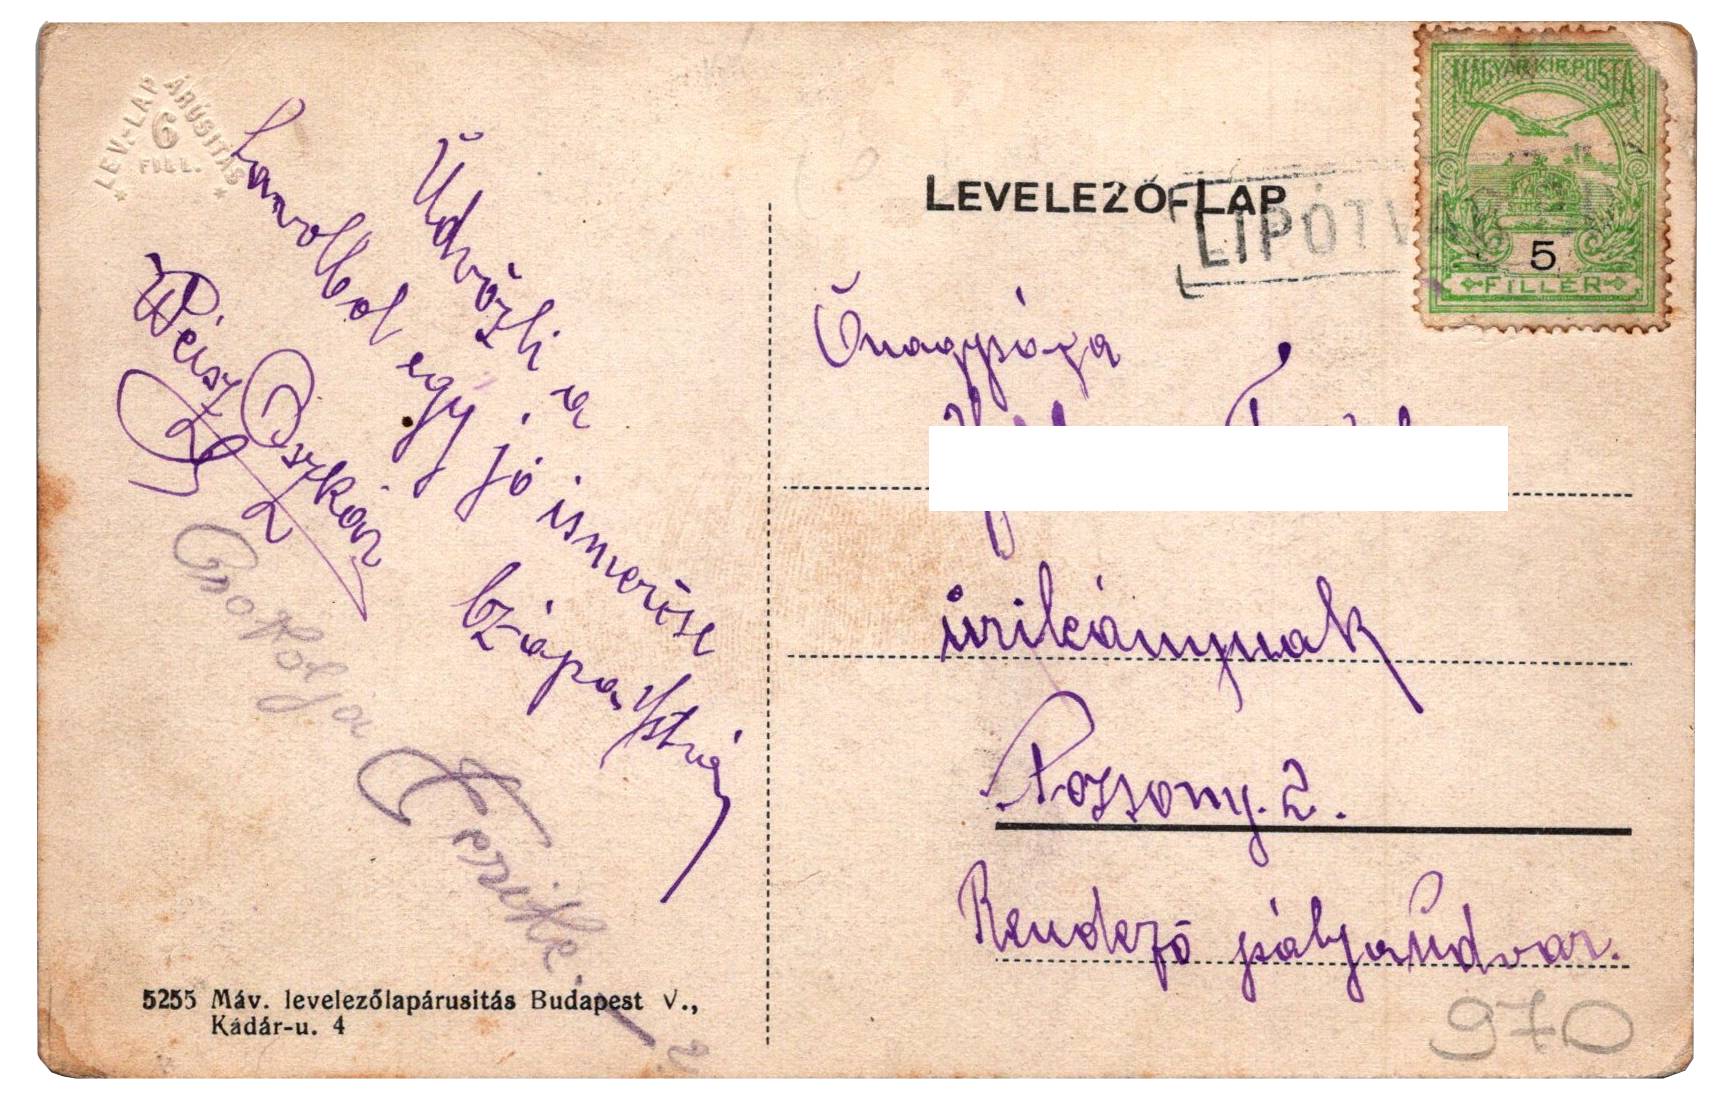 LEV.-LAP ÁRUSITÁS
6
FILL.
Üdvözli a
távolból egy jó ismerőse
Weisz Oszkár
Csókolja
Terzike.
LEVELEZŐ-LAP
LIPÓTVÁR
MAGYAR KIR. POSTA
5
FILLÉR
Őnagysága
úrileánynak
Pozsony. 2.
Rendező pályaudvar.
970
5255 Máv. levelezőlapárusitás Budapest V.,
Kádár-u. 4